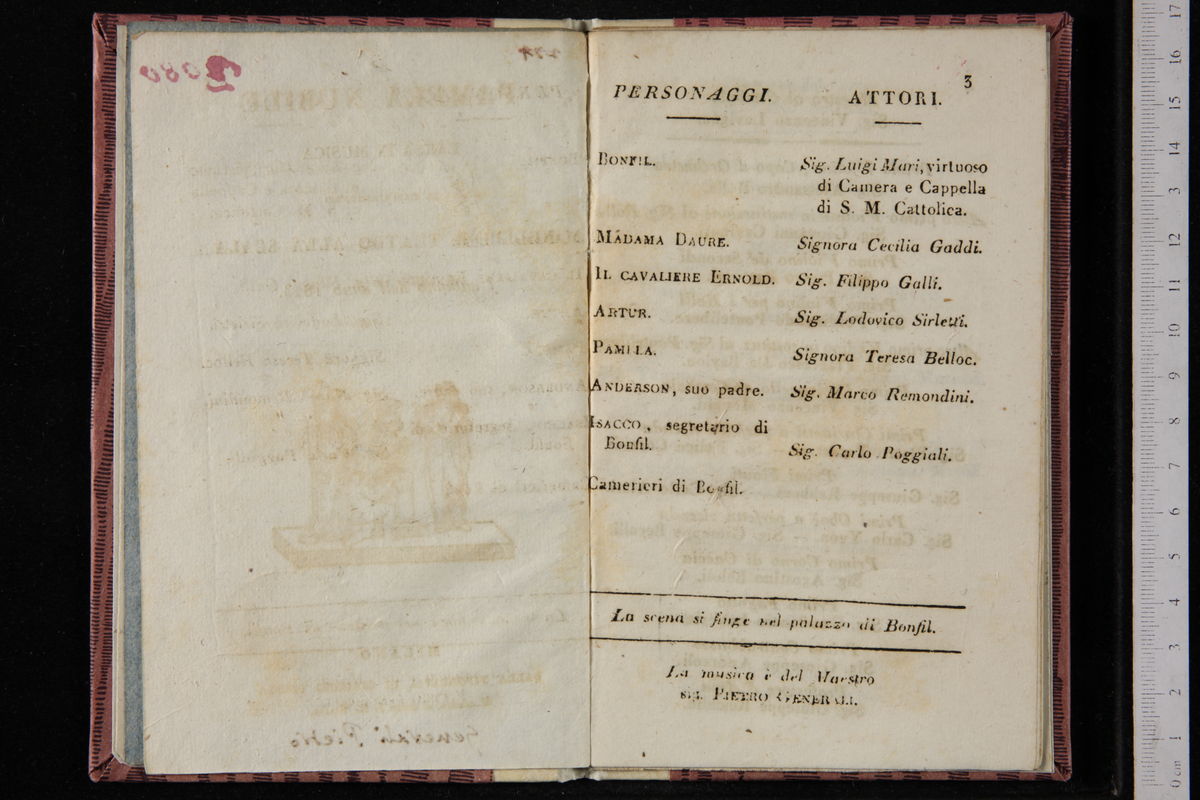 3
PERSONAGGI. ATTORI.
BONFIL. Sig. Luigi Mari, virtuoso
di Camera e Cappella
di S. M. Cattolica.
MADAMA DAURE. Signora Cecilia Gaddi.
IL CAVALIERE ERNOLD. Sig. Filippo Galli.
ARTUR. Sig. Lodovico Sirletti.
PAMELA. Signora Teresa Belloc.
ANDERSON, suo padre. Sig. Marco Remondini.
ISACCO, segretario di
Bonfil. Sig. Carlo Poggiali.
Camerieri di Bonfil.
La scena si finge nel palazzo di Bonfil.
La musica è del Maestro
sig. PIETRO GENERALI.